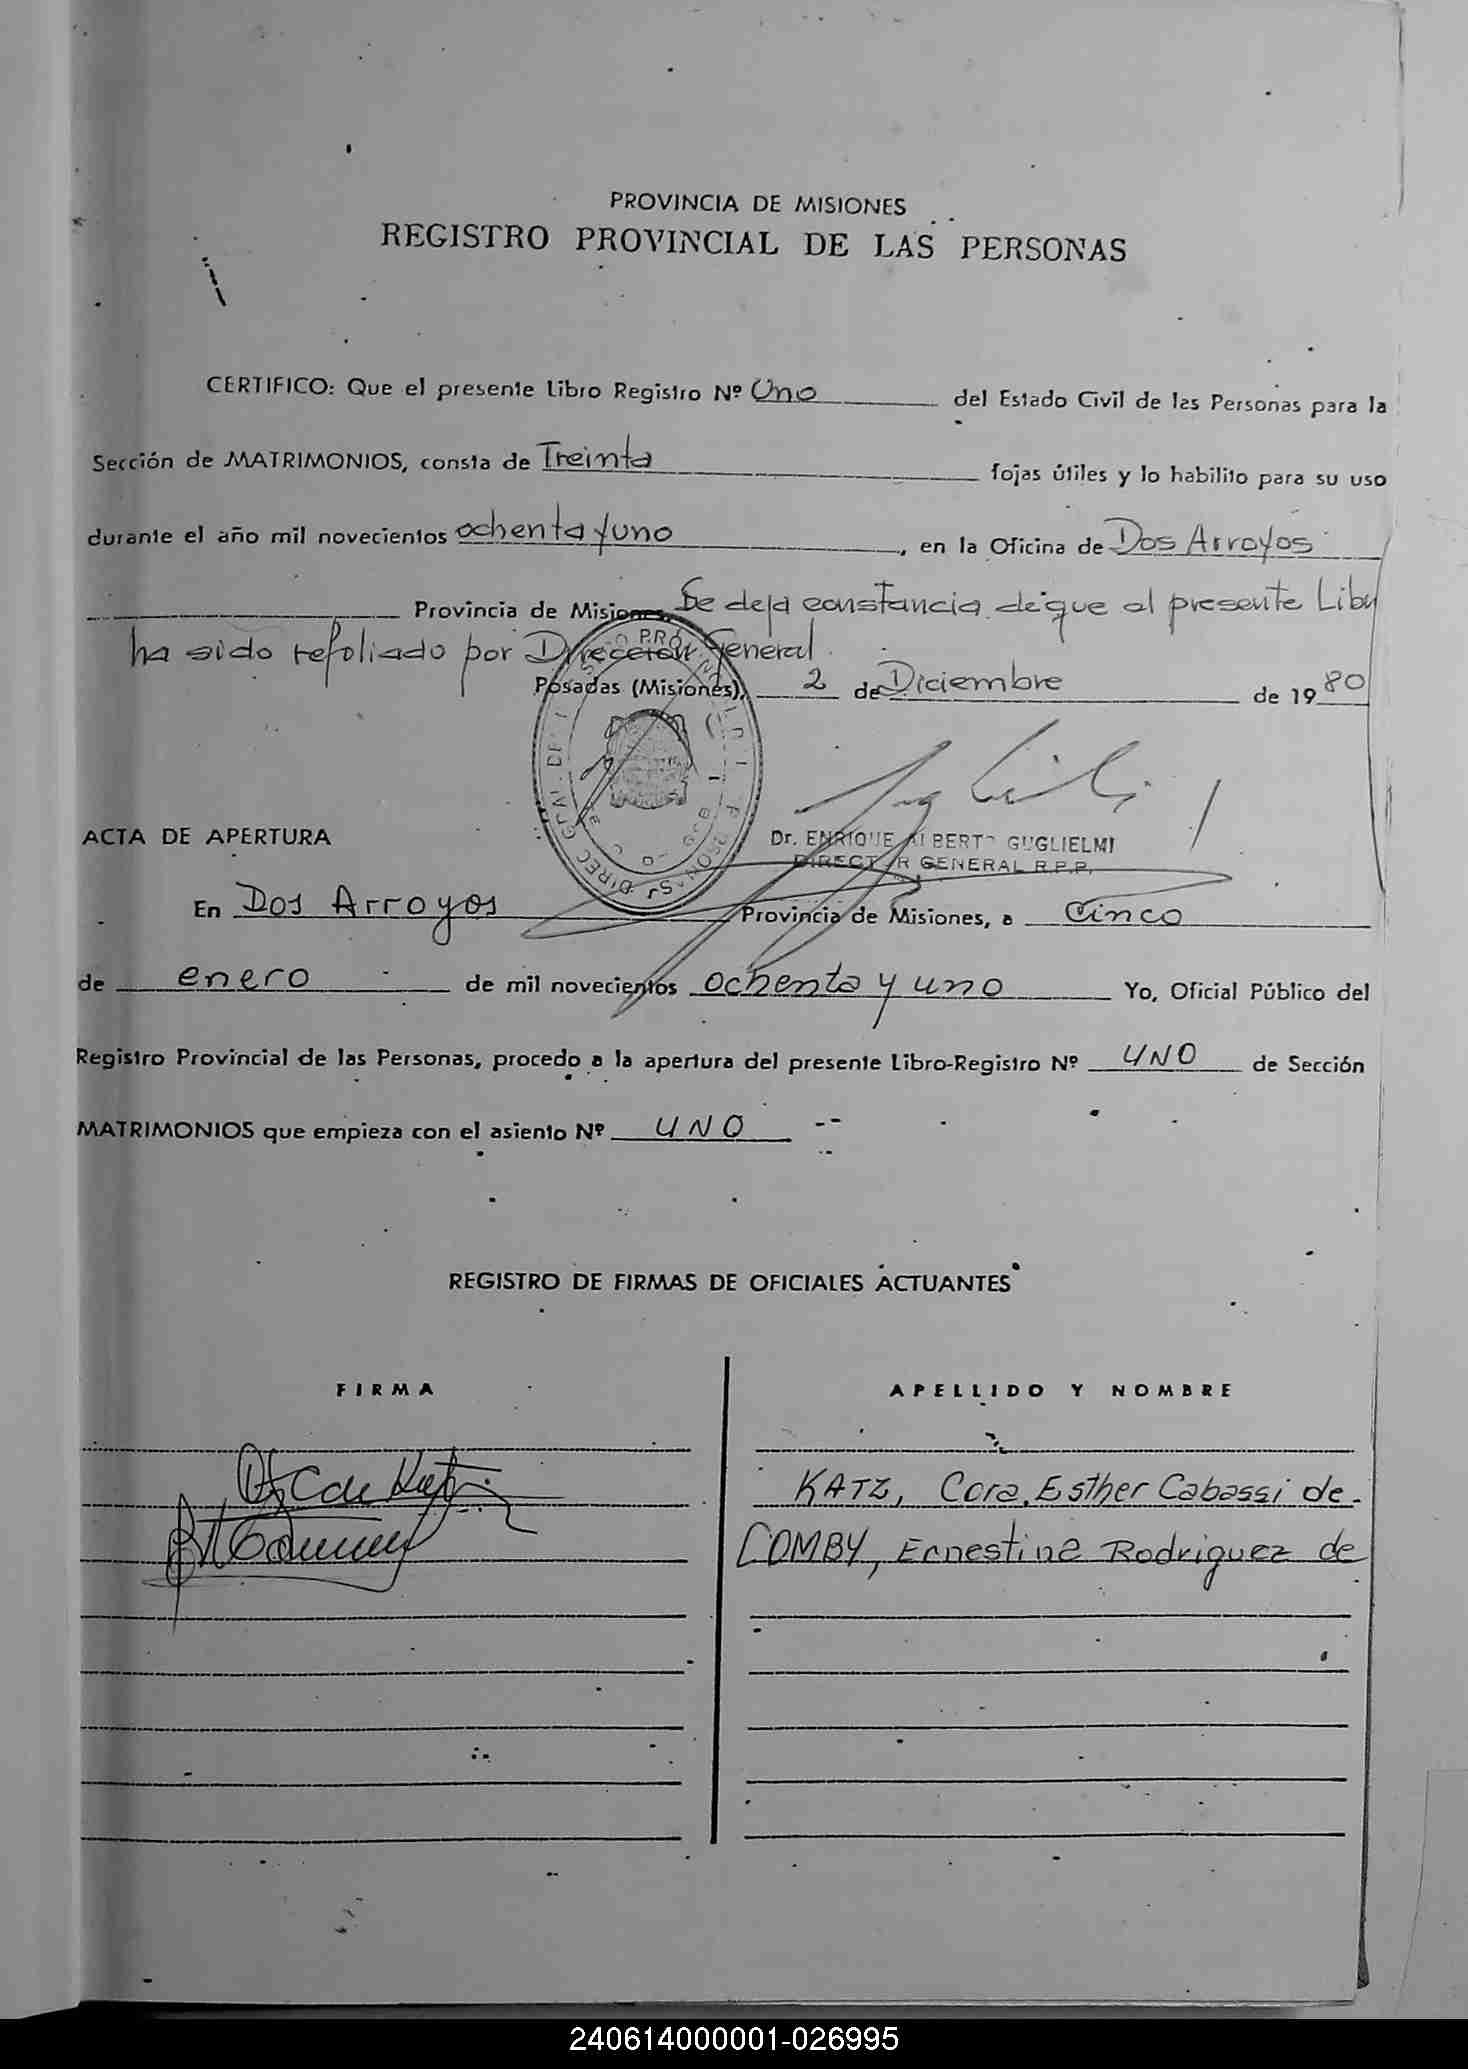 PROVINCIA DE MISIONES
REGISTRO PROVINCIAL DE LAS PERSONAS
CERTIFICO: Que el presente Libro Registro Nº Uno del Estado Civil de las Personas para la
Sección de MATRIMONIOS, consta de Treinta fojas útiles y lo habilito para su uso
durante el año mil novecientos ochenta y uno, en la Oficina de Dos Arroyos
Provincia de Misiones. Se deja constancia de que el presente Libro
ha sido refoliado por Dirección General.
Posadas (Misiones), 2 de Diciembre de 1980
Dr. ENRIQUE ALBERTO GUGLIELMI
DIRECTOR GENERAL R.P.P.
ACTA DE APERTURA
En Dos Arroyos Provincia de Misiones, a Cinco
de enero de mil novecientos ochenta y uno Yo, Oficial Público del
Registro Provincial de las Personas, procedo a la apertura del presente Libro-Registro Nº UNO de Sección
MATRIMONIOS que empieza con el asiento Nº UNO --
REGISTRO DE FIRMAS DE OFICIALES ACTUANTES
FIRMA APELLIDO Y NOMBRE
KATZ, Cora Esther Cabassi de.
COMBY, Ernestina Rodriguez de
240614000001-026995